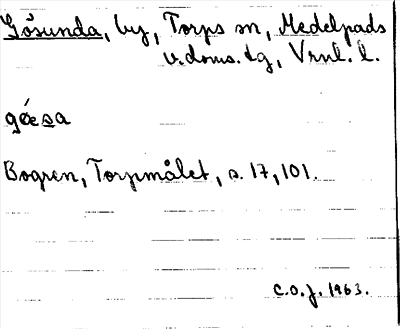 Gösunda, by, Torps sn, Medelpads
v. doms. tg, Vrnl. l.
gǿsa
Bogren, Torpmålet, s. 17, 101.
C.O.J. 1963.